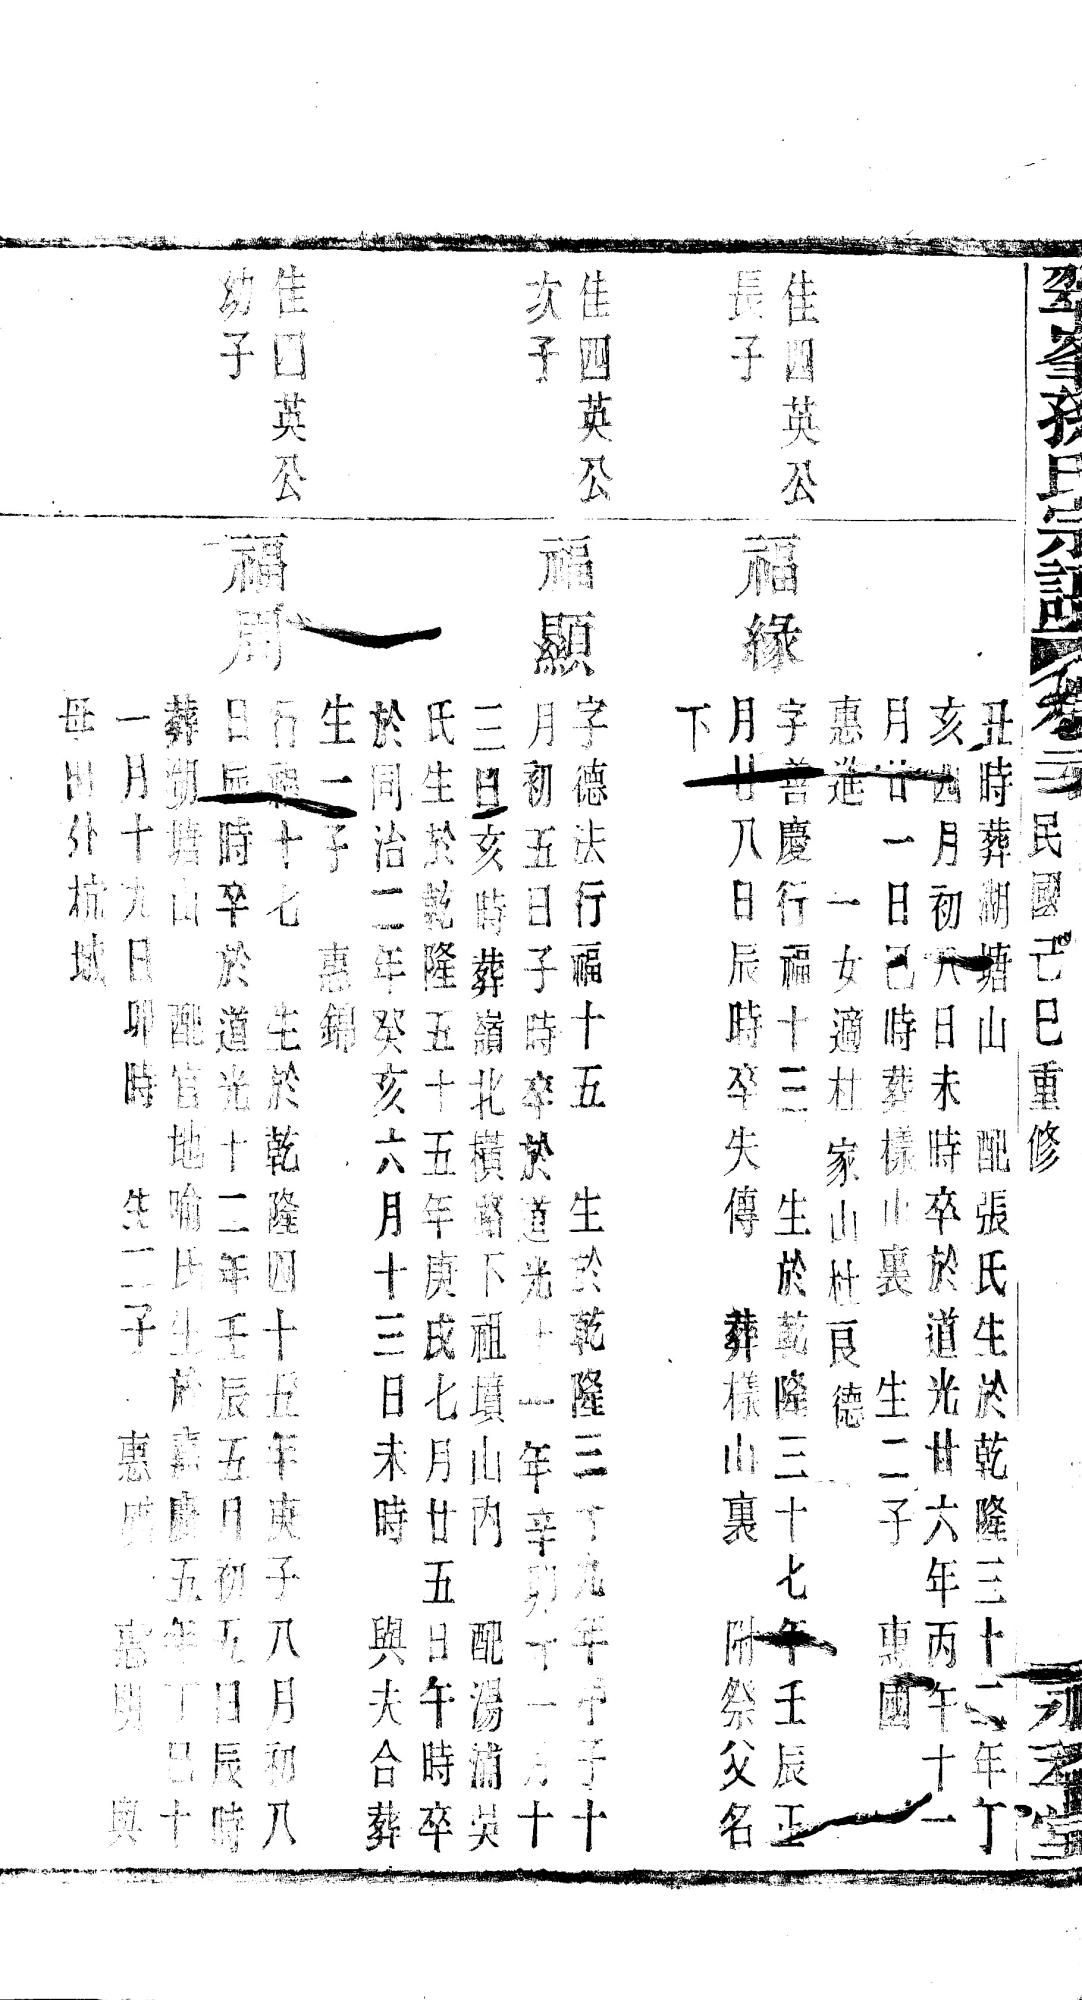 孫氏宗譜 卷 民國己巳重修 永 堂
丑時葬湖塘山 配張氏生於乾隆三十二年丁
亥四月初八日未時卒於道光廿六年丙午十一
月廿一日巳時葬樣山裏 生二子 惠國
惠進 一女適杜家山杜良德
佳四英公
長子
福緣
字善慶行福十三 生於乾隆三十七年壬辰正
月廿八日辰時卒失傳 葬樣山裏 附祭父名
下
佳四英公
次子
福顯
字德法行福十五 生於乾隆三十九年甲午十
月初五日子時卒於道光十一年辛卯十一月十
三日亥時葬嶺北橫路下祖墳山內 配湯浦吳
氏生於乾隆五十五年庚戌七月廿五日午時卒
於同治二年癸亥六月十三日未時 與夫合葬
生一子 惠錦
佳四英公
幼子
福周
行福十七 生於乾隆四十五年庚子八月初八
日辰時卒於道光十二年壬辰五月初五日辰時
葬湖塘山 配官地喻氏生於嘉慶五年丁巳十
一月十九日卯時 生二子 惠 惠明 與
母出外杭城